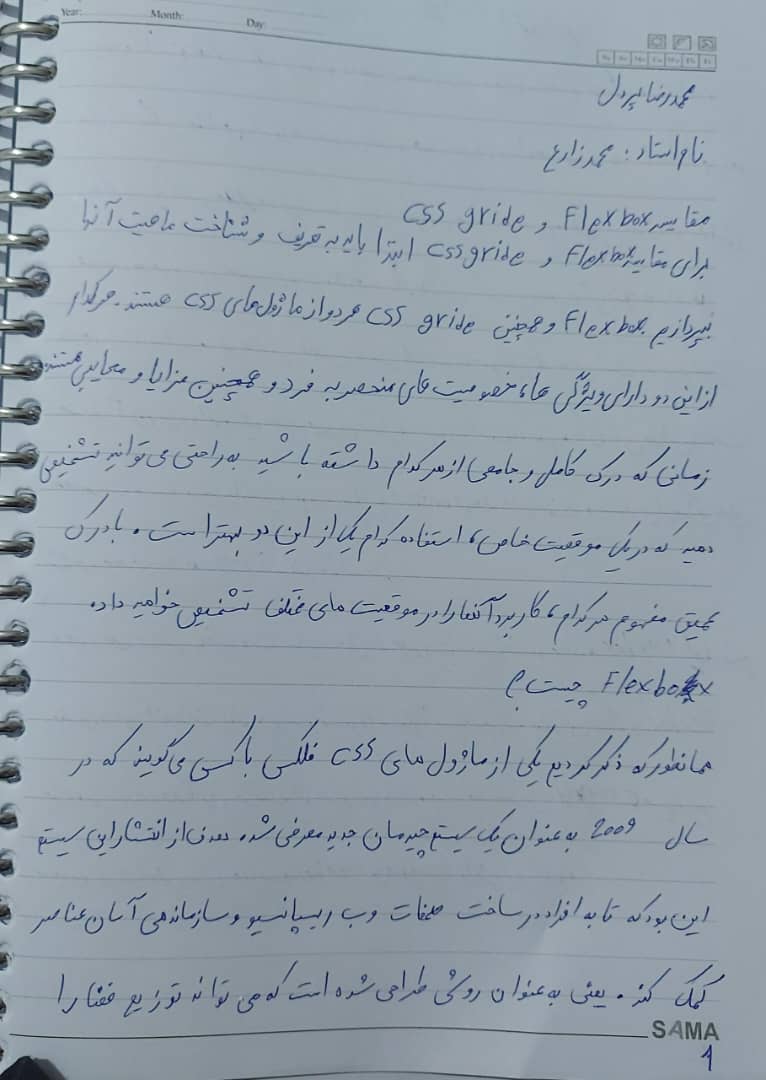 Year: Month: Day:
Sa Su Mo Tu We Th Fr
محمدرضا پردل
نام استاد : محمد زارع
مقایسه Flexbox و css gride
برای مقایسه Flexbox و css gride ابتدا باید به تعریف و شناخت ماهیت آنها
بپردازیم . Flexbox و همچنین css gride هر دو از ماژول‌های css هستند . هرکدام
از این دو دارای ویژگی ها، خصوصیت های منحصر به فرد و همچنین مزایا و معایبی هستند
زمانی که درک کامل و جامعی از هر کدام داشته باشید به راحتی می توانید تشخیص
دهید که در یک موقعیت خاص، استفاده کدام یک از این دو بهتر است . با درک
عمیق مفهوم هر کدام، کاربرد آنها را در موقعیت های مختلف تشخیص خواهید داد.
Flexbox چیست؟
همانطور که ذکر کردیم یکی از ماژول های css فلکس باکس می گویند که در
سال 2009 به عنوان یک سیستم چیدمان جدید معرفی شد. هدف از انتشار این سیستم
این بود که تا به افراد در ساخت صفحات وب ریسپانسیو و سازماندهی آسان عناصر
کمک کند . یعنی به عنوان روشی طراحی شده است که می تواند توزیع فضا را
SAMA
1